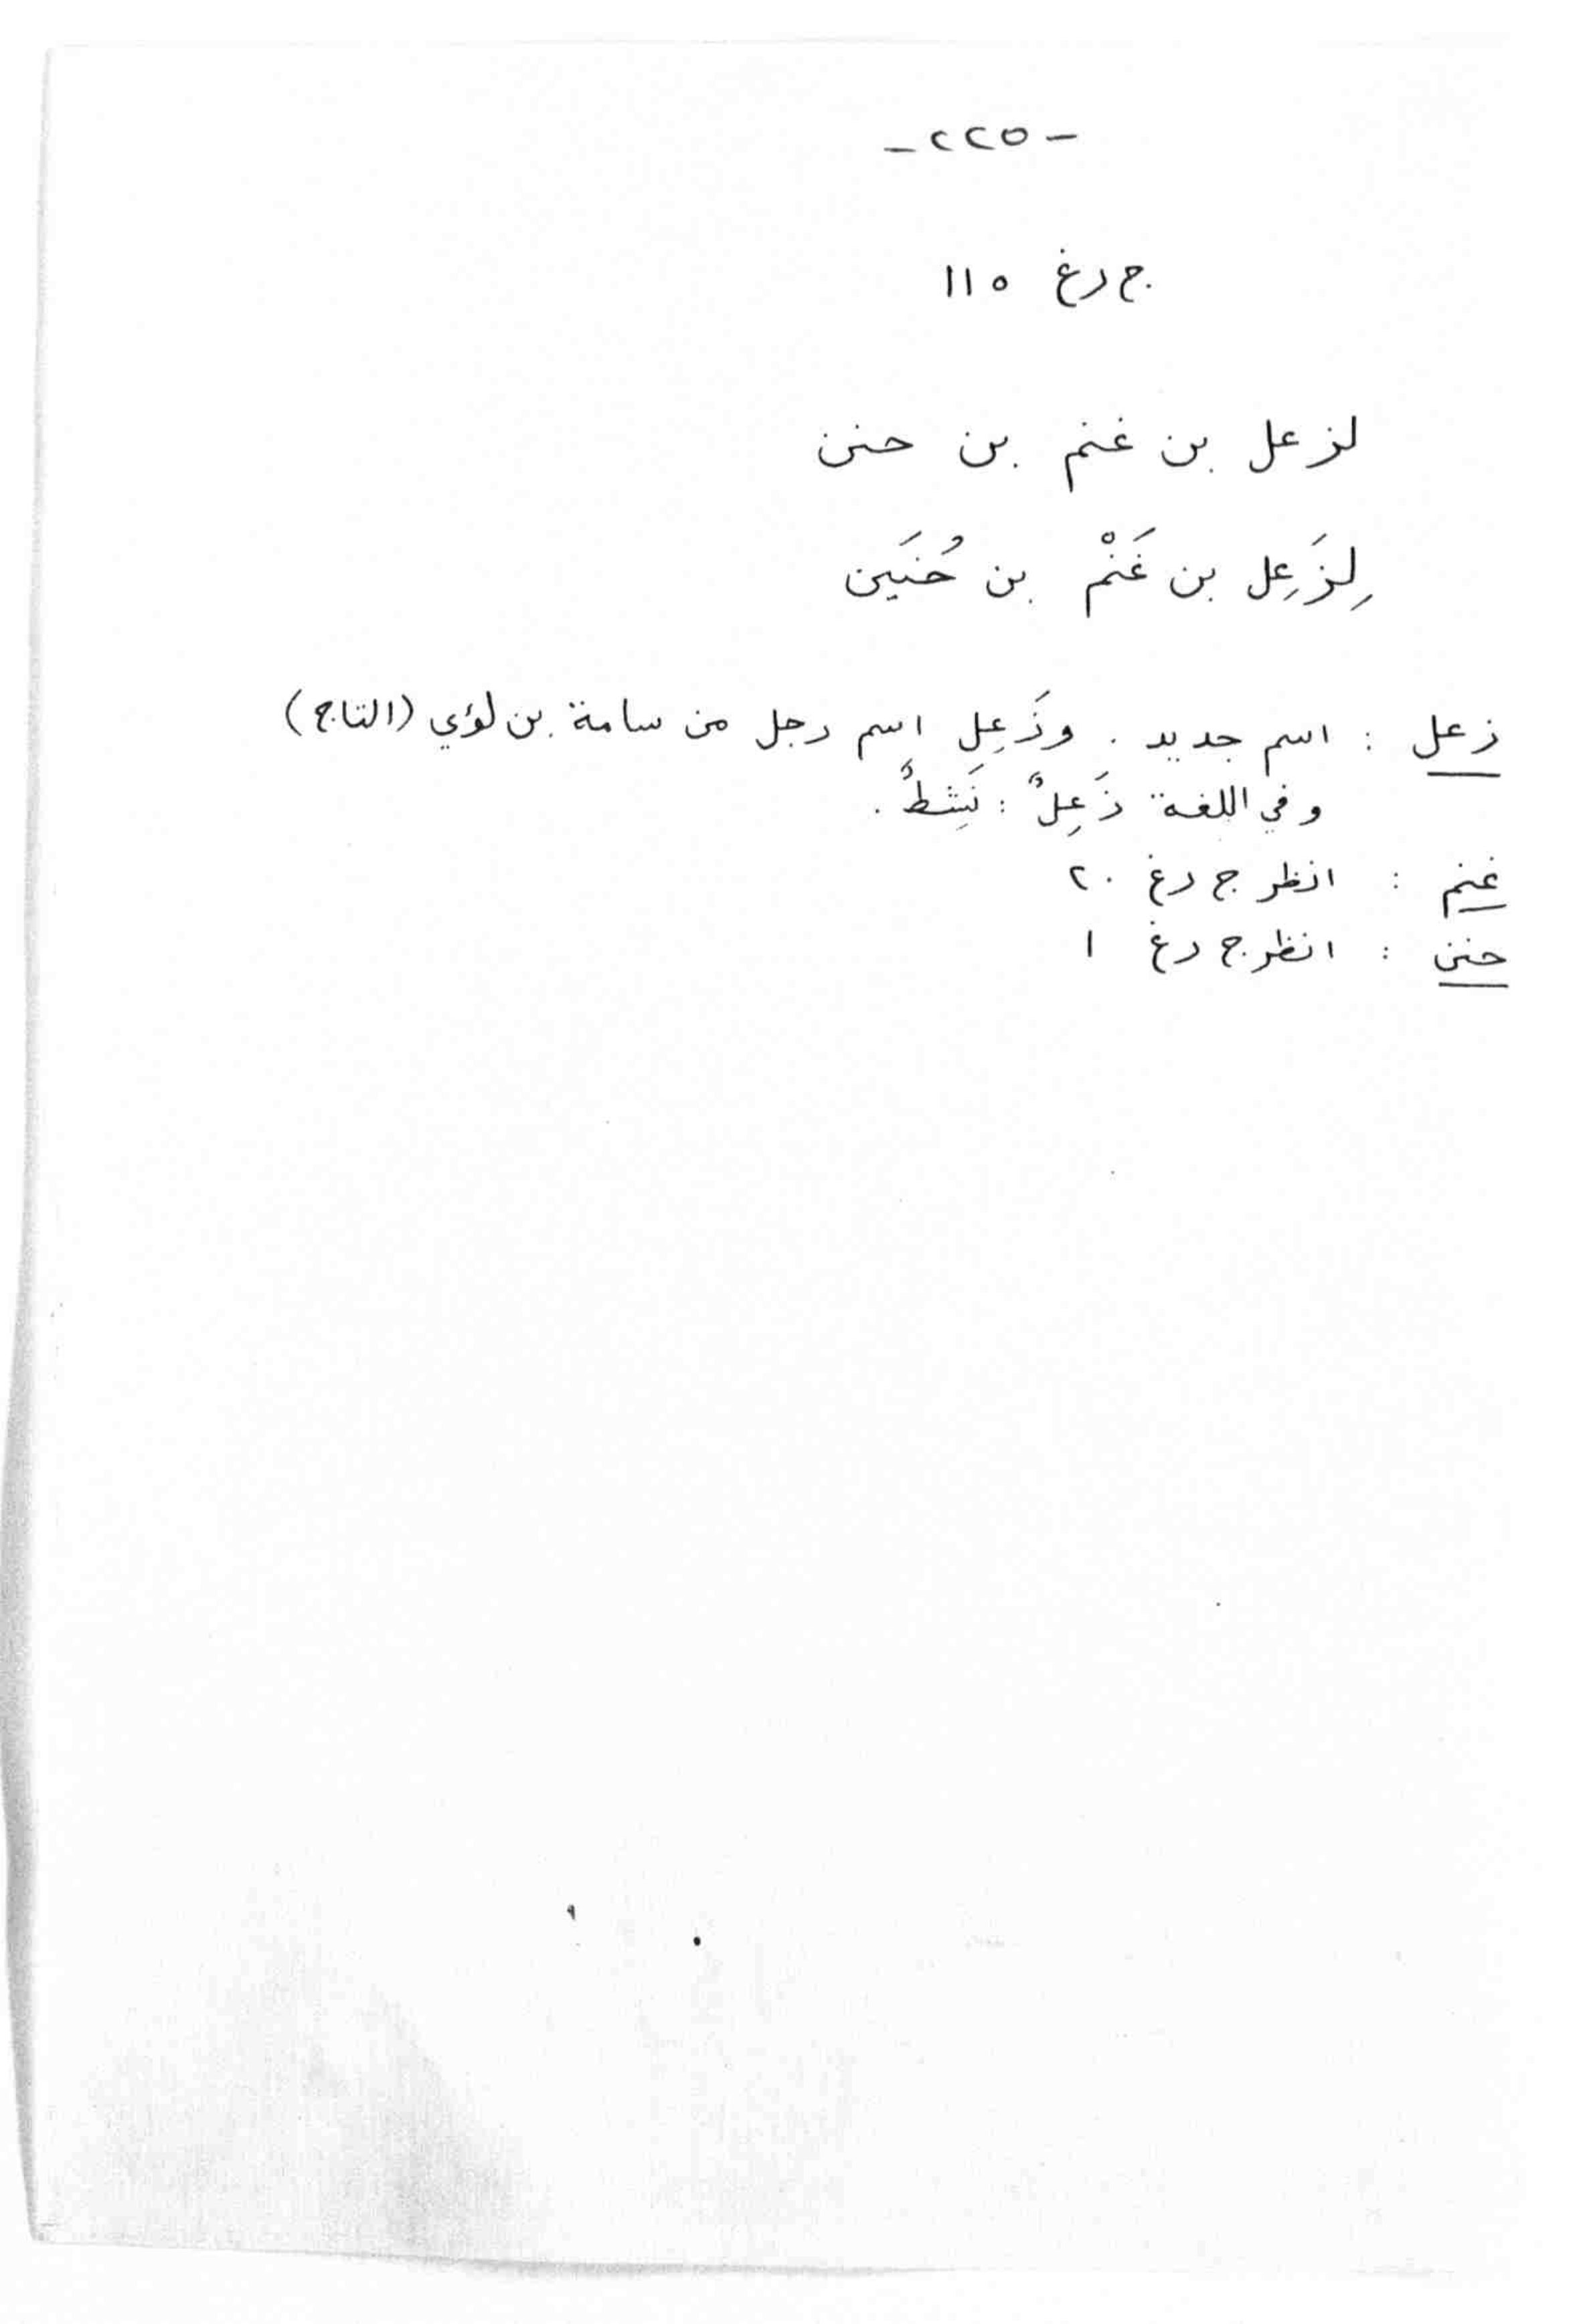 - ٢٢٥ -
ج رغ ١١٥
لزعل بن غنم بن حنن
لِزَعِل بن غَنْم بن حُنَين
زعل : اسم جديد . وزَعِل اسم رجل من سامة بن لؤي (التاج)
وفي اللغة زَعِلٌ : نَشِطٌ .
غنم : انظر ج رغ ٢٠
حنن : انظر ج رغ ١